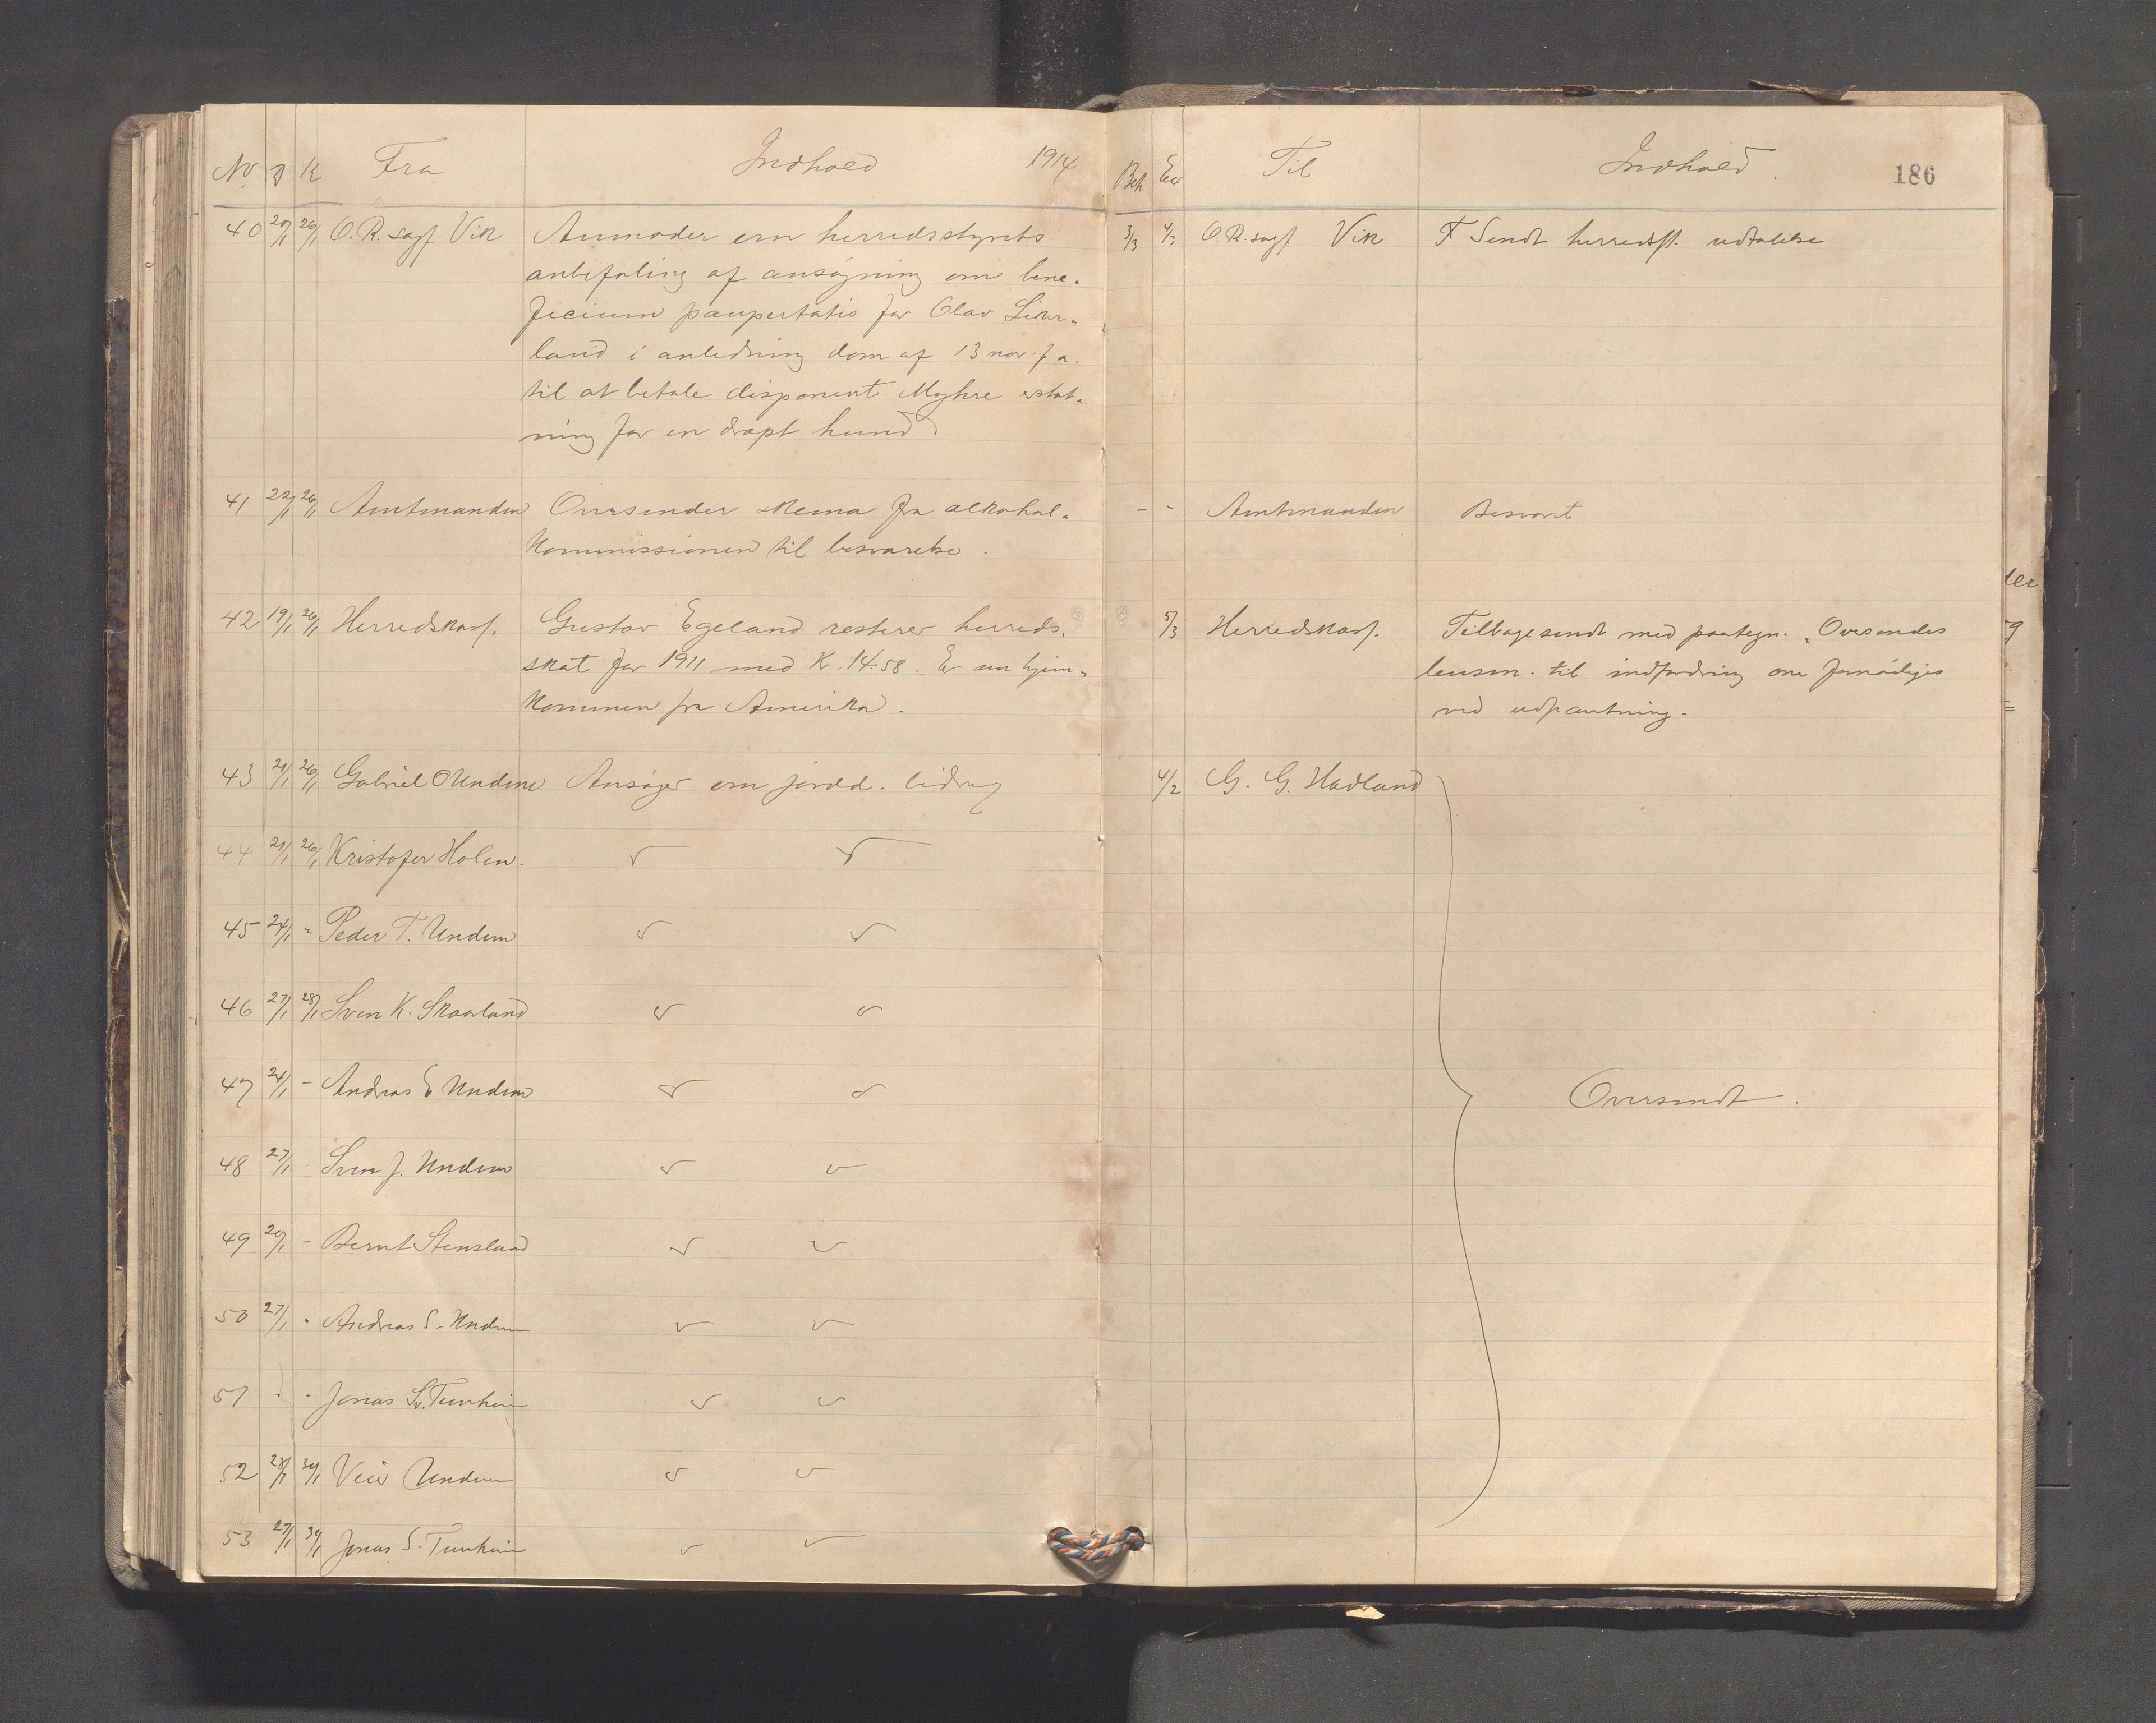 No D K Fra Indhold 1914
40 20/1 26/1 O.R. sagf Vik Anmoder om herredsstyrets
anbefaling af ansøgning om bene-
ficium paupertatis for Olav
land i anledning dom af 13 nov f.a.
til at betale disponent Myhre erstat-
ning for en dræpt hund
41 22/1 26/1 Amtmanden Oversender skema fra alkohol-
kommissionen til besvarelse.
42 19/1 26/1 Herredskass. Gustav Egeland resterer herreds-
skat for 1911 med Kr. 14.58. Er nu hjem-
kommen fra Amerika.
43 21/1 26/1 Gabriel O Undem Ansøger om jordd. bidrag
44 21/1 26/1 Kristofer Holen. v v
45 24/1 " Peder T. Undem v v
46 27/1 28/1 Sven K. Skaarland v v
47 24/1 - Andreas E Undem v v
48 27/1 - Sven J. Undem v v
49 20/1 - Bernt Stensland v v
50 27/1 " Andreas S. Undem v v
51 " " Jonas Sv. Tunheim v v
52 28/1 30/1 Undem v v
53 27/1 30/1 Jonas S. Tunheim v v
Beh Ex Til Indhold. 186
3/3 4/3 O.R. sagf Vik F Sendt herredsst. udtalelse
- - Amtmanden Besvart
5/3 Herredskass. Tilbagesendt med paategn. "Oversendes
lensm. til indfordring om fornødiges
ved udpantning.
4/2 G. G. Hadland
Oversendt.